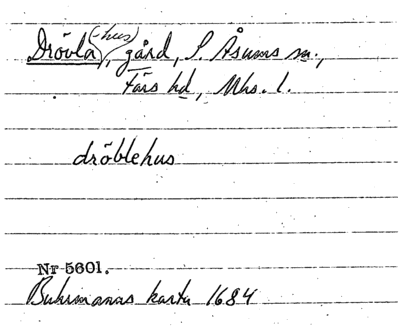 Drövla(-hus), gård, S. Åsums sn.,
Färs hd, Mhs. l.
dröblehus
Nr 5601.
Buhrmanns karta 1684